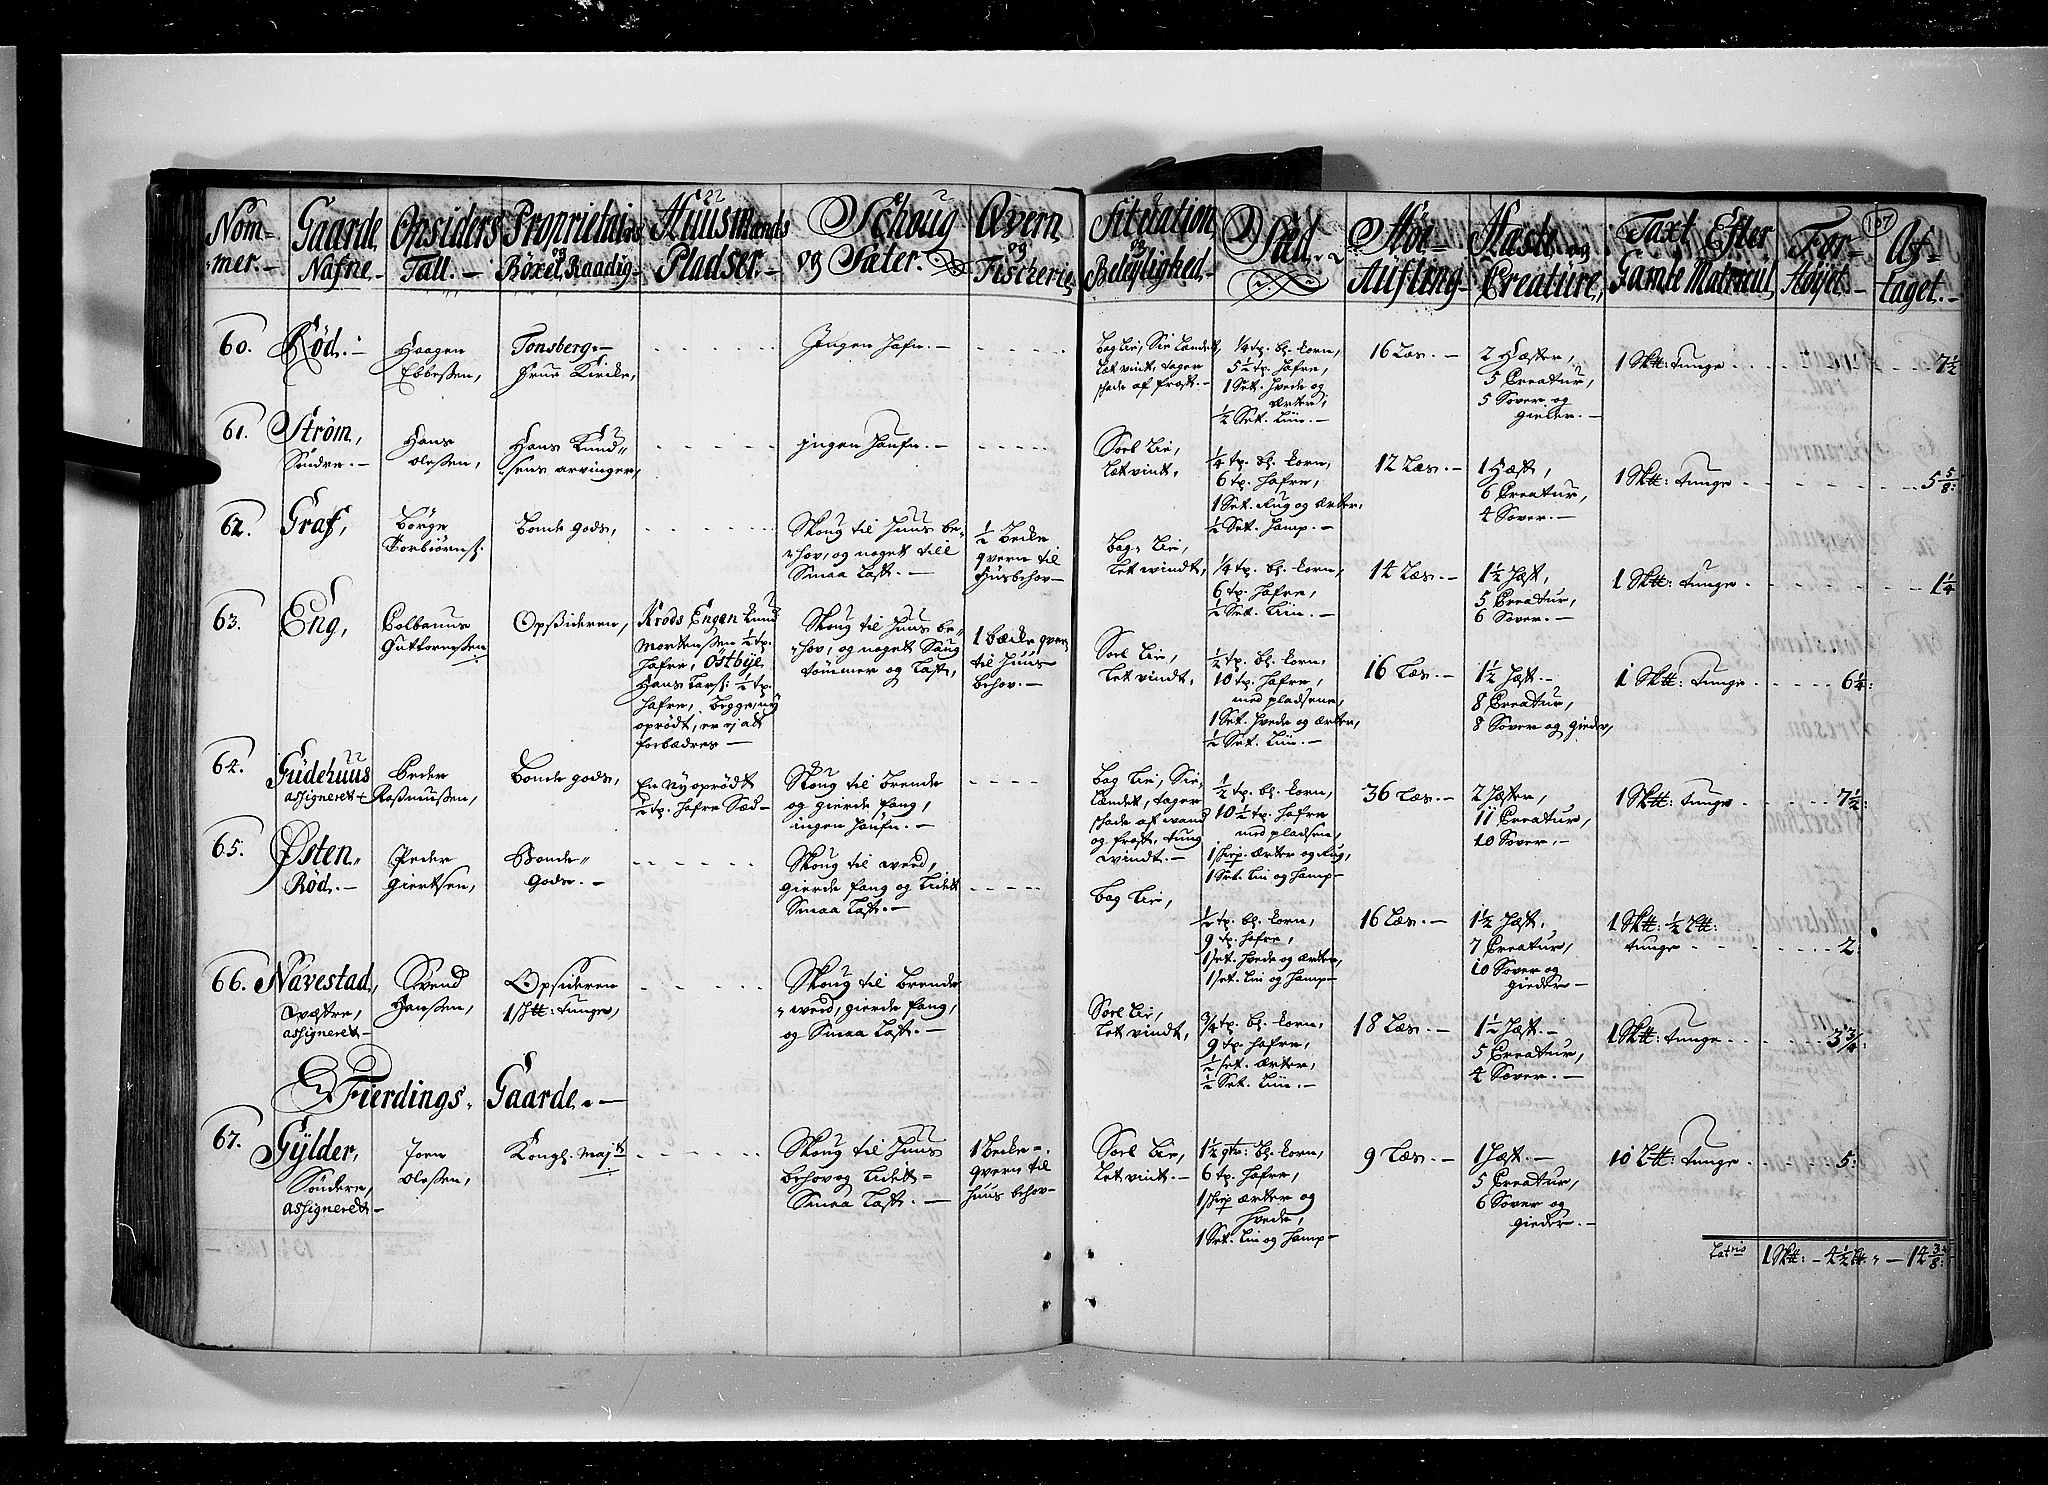 107
Nom=
mer.
Gaarde
Nafne.
Opsiders
Tall.
Proprietairs
og
Böxel Raadig
Huusmænds
Pladser.
Schoug
og Sæter.
Qvern
og
Fiskerie
Situation
og
Beleylighed.
Sæd
Höe=
Aufling
Hæste og
Creature,
Taxt Efter
Gamle Matricul,
For=
Höyet
Af=
taget.
60.
Röd.
Haagen
Ebbeßen,
Tonsberg
Frue Kircke,
Jngen Hafn.
bag lie, Sie Landet,
let vindt, tager
skade af frost.
1/4 tp. bl. korn,
5 1/2 tp. Hafre,
1 Set. hvede og
ærter,
1/2 Set. Liin.
16 Læs.
2 Hæster,
5 Creatur,
5 Sover og
gieder.
1 Sk℔: tunge
7 1/2
61.
Ström,
Söndre.
Hans
Oleßen,
Hans Knud
sens arvinger,
jngen haufn.
Soel lie,
let vindt,
1/4 tp. bl. korn,
6 tp. Hafre,
1 Set. Rug og ærter,
1/2 Set. hamp.
12 Læs.
1 Hæst,
6 Creatur,
4 Sover.
1 Sk℔: tunge
5 5/8:
62.
Graf,
Börge
Torbiörnß.
Bonde gods,
Skoug til huus be=
hov, og noget till
Smaa Last.
1/2 becke
qvern til
Husbehov
bag lie,
let windt,
1/4 tp. bl. korn,
6 tp. hafre,
1/2 Set. Liin.
14 Læs.
1 1/2 Hæst,
5 Creatur,
6 Sover.
1 Sk℔: tunge
1 1/4
63.
Eng,
Colbanus
Guttormßen
Opsideren,
Kröds Engen Knud
Mortenßen 1/2 tp.
hafre, Östbye,
Hans Larß: 1/2 tp.
hafre, begge ny
oprödt, er ej at
forbædres
Skoug til huus be=
hov, og noget Saug
tömmer og Last,
1 bæcke qvern
til huus
behov.
Soel lie,
let vindt,
1/2 tp. bl. korn,
10 tp. hafre,
med pladsene,
1 Set. hvede og ærter,
1/2 Set. Liin.
16 Læs.
1 1/2 Hæst.
8 Creatur,
8 Sover og gieder,
1 Sk℔: tunge
6 1/4:
64.
Gudehuus
assigneret
Peder
Rasmusßen,
Bonde gods,
En Ny oprödt
1/2 tp. hafre Sæd
Skoug til brende
og gierde fang,
ingen haufn.
bag lie, Sie,
lændet, tager
skade af wand
og frost, tung
windt.
1/2 tp. bl. korn,
10 1/2 tp. Hafre
med pladsen,
1 skiep ærter og Rug,
1 Set. Lin og hamp
36 Læs.
2 Hæster,
11 Creatur,
10 Sover,
1 Sk℔: tunge
7 1/2:
65.
Østen
Röd.
Peder
Giertsen,
Bonde
Gods.
Skoug til weed,
gierde fang og lidet
Smaa Last.
bag lie,
1/2 tp. bl. korn,
9 tp. hafre,
1 set. hvede og ærter,
1 set. Lin og hamp
16 Læs.
1 1/2 Hæst,
7 Creatur,
10 Sover og
gieder
1 Sk℔: 1/2 L℔:
tunge
2:
66.
Navestad,
Wæstre,
assigneret
Svend
Hanßen,
Opsideren
1 S℔: tunge,
Skoug til brende
weed, gierde fang,
og Smaa Last.
Soel lie,
let vindt,
3/4 tp. bl. korn,
9 tp. Hafre,
1/2 set. ærter,
1/2 Set. Liin.
18 Læs.
1 1/2 Hæst.
5 Creatur,
4 Sover.
1 Sk℔: tunge
3 3/4:
Fierdings Gaarde.
67.
Gylder,
Söndere,
assigneret
Joen
Oleßen,
Kongl. mayts
Skoug til huus
behov og lidet
Smaa Last.
1 becke=
qvern til
huus behov
Soel lie,
let vindt.
1 1/2 qtr: bl. korn,
6 tp. hafre,
1 skiep ærter og
hvede,
1 Set. Lin og hamp
9 Læs.
1 Hæst.
5 Creatur,
6 Sover og
gieder.
10 L℔: tunge
5:
Lateris
1 Sk℔: 4 1/2 L℔: 14 3/8: